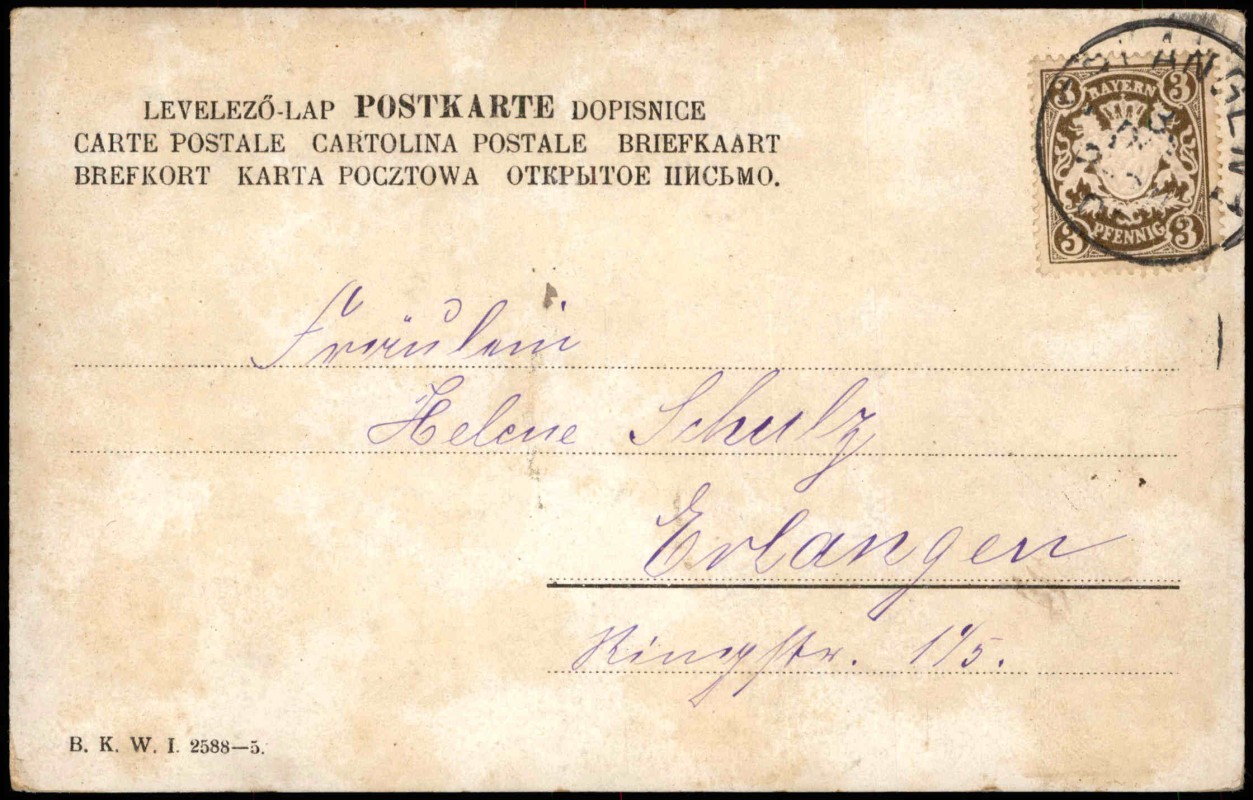 LEVELEZŐ-LAP POSTKARTE DOPISNICE
CARTE POSTALE CARTOLINA POSTALE BRIEFKAART
BREFKORT KARTA POCZTOWA ОТКРЫТОЕ ПИСЬМО.
3 BAYERN 3
3 PFENNIG 3
Fräulein
Helene Schulz
Erlangen
Ringstr.
B. K. W. I. 2588—5.